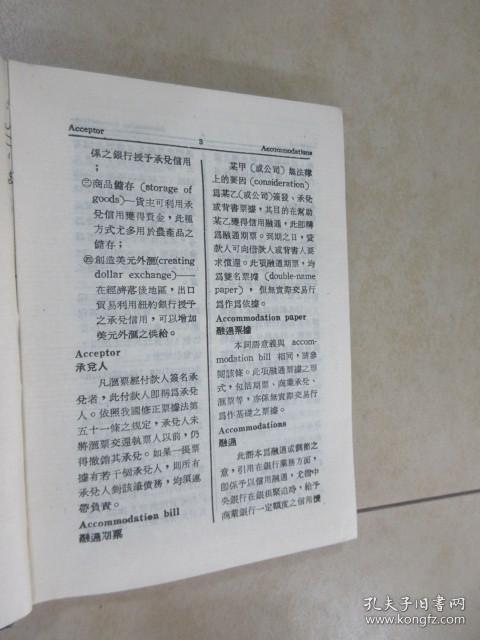 Acceptor
3
Accommodations
係之銀行授予承兌信用
;
㊂商品儲存 (storage of
goods)—貨主可利用承
兌信用獲得資金,此種
方式尤多用於農產品之
儲存;
㊃創造美元外滙(creating
dollar exchange)—
在經濟落後地區,出口
貿易利用紐約銀行授予
之承兌信用,可以增加
美元外滙之供給。
Acceptor
承兌人
凡滙票經付款人簽名承
兌者,此付款人卽稱爲承兌
人。依照我國修正票據法第
五十一條之規定,承兌人未
將滙票交還執票人以前,仍
得撤銷其承兌。如果一張票
據有若干個承兌人,則所有
承兌人對該項債務,均須連
帶負責。
Accommodation bill
融通期票
某甲(或公司)無法律
上的要因 (consideration)
爲某乙(或公司)簽發、承兌
或背書票據,其目的在幫助
某乙獲得信用融通,此卽稱
爲融通期票。到期之日,貸
款人可向借款人或背書人要
求償還。此項融通期票,均
爲雙名票據 (double-name
paper),但無實際交易行
爲作爲依據。
Accommodation paper
融通票據
本詞語意義與 accom-
modation bill 相同,請參
閱該條。此項融通票據之形
式,包括期票、商業承兌、
滙票等,亦係無實際交易行
爲作基礎之票據。
Accommodations
融通
此辭本爲融通或調節之
意,引用在銀行業務方面,
卽係予以信用融通,尤指中
央銀行在銀根緊迫時,給予
商業銀行一定額度之信用價
孔夫子旧书网
kongfz.com